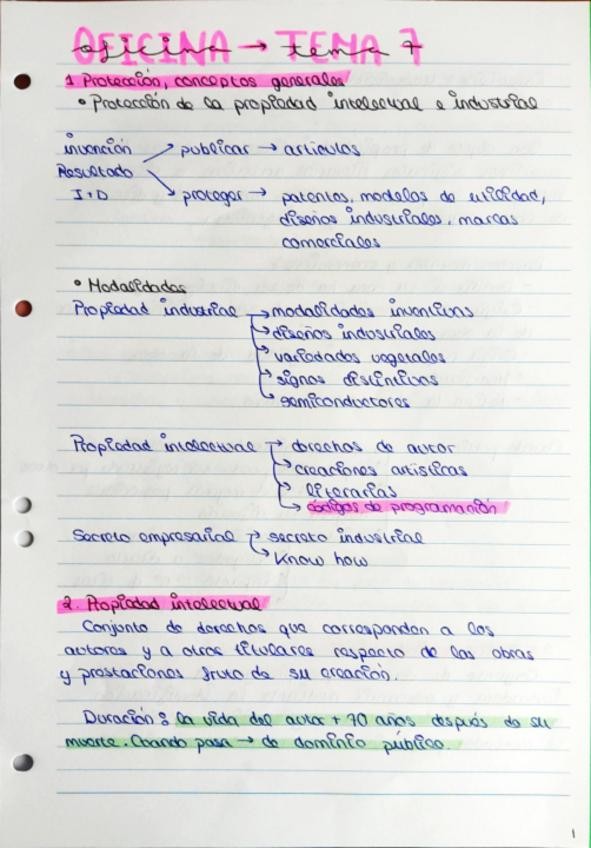 OFICINA → TEMA 7
1. Protección, conceptos generales
• Protección de la propiedad intelectual e industrial
invención → publicar → artículos
Resultado
I+D → proteger → patentes, modelos de utilidad,
diseños industriales, marcas
comerciales
• Modalidades
Propiedad industrial → modalidades inventivas
→ diseños industriales
→ variedades vegetales
→ signos distintivos
→ semiconductores
Propiedad intelectual → derechos de autor
→ creaciones artísticas
→ literarias
→ códigos de programación
Secreto empresarial → secreto industrial
→ Know how
2. Propiedad intelectual
Conjunto de derechos que corresponden a los
autores y a otros titulares respecto de las obras
y prestaciones fruto de su creación.
Duración: la vida del autor + 70 años después de su
muerte. Cuando pasa → de dominio público.
1